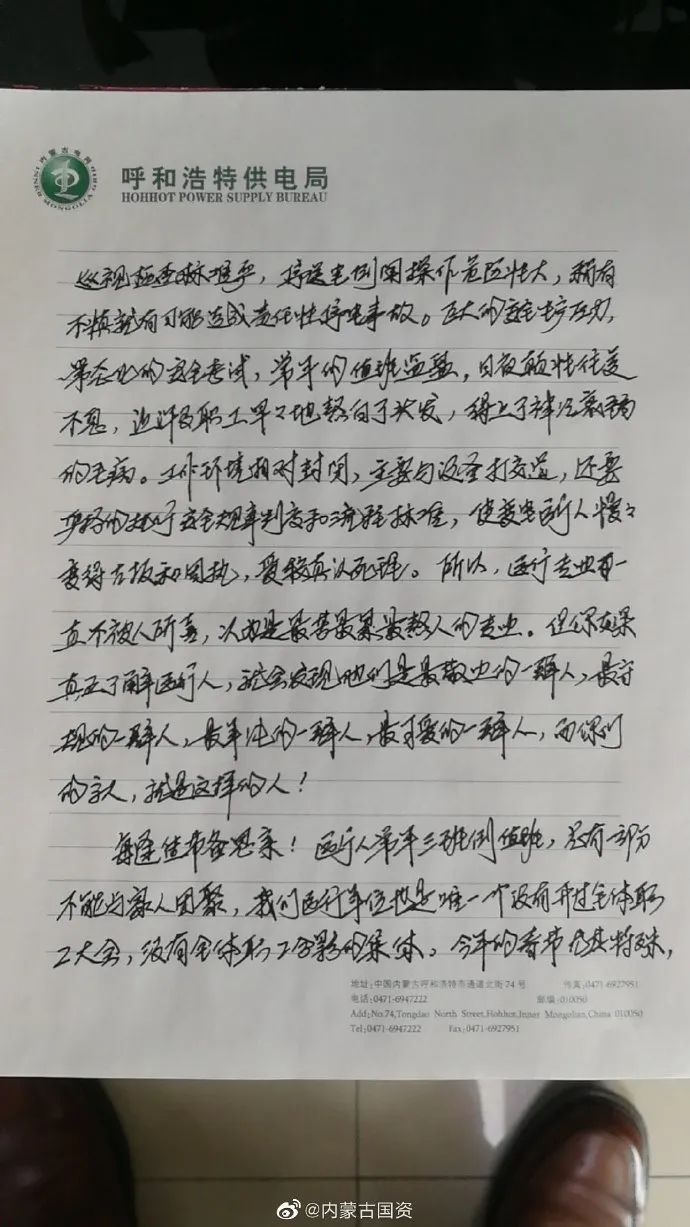 内蒙古电网
INNER MONGOLIA GRID
呼和浩特供电局
HOHHOT POWER SUPPLY BUREAU
巡视检查标准严，停送电倒闸操作危险性大，稍有
不慎就有可能造成责任性停电事故。巨大的安全生产压力，
常态化的安全考试，常年的值班监盘，日夜颠倒
不息，职工早々地熬白了头发，得上了神经衰弱
的毛病。工作环境相对封闭，主要与设备打交道，还要
严格的执行安全规章制度和流程标准，使变电运行人慢々
变得古板和固执，爱较真认死理。所以，运行专业一
直不被人所喜，以为是最苦最累最熬人的专业。但你如果
真正了解运行人，就会发现他们是最敬业的一群人，最守
规的一群人，最单纯的一群人，最可爱的一群人，而你们
的家人，就是这样的人！
每逢佳节倍思亲！运行人常年三班倒值班，总有部分
不能与家人团聚，我们运行单位也是唯一个没有开过全体职
工大会，没有全体职工合影的集体。今年的春节尤其特殊，
地址:中国内蒙古呼和浩特市通道北街74号 传真:0471-6927951
电话:0471-6947222 邮编:010050
Add:No.74,Tongdao North Street,Hohhot,Inner Mongolian,China 010050
Tel:0471-6947222 Fax:0471-6927951
@内蒙古国资